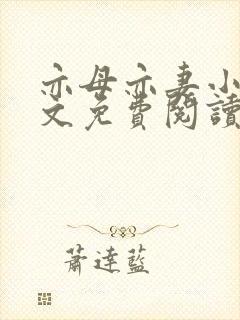 亦母亦妻小
文免費閱讀
蕭達藍